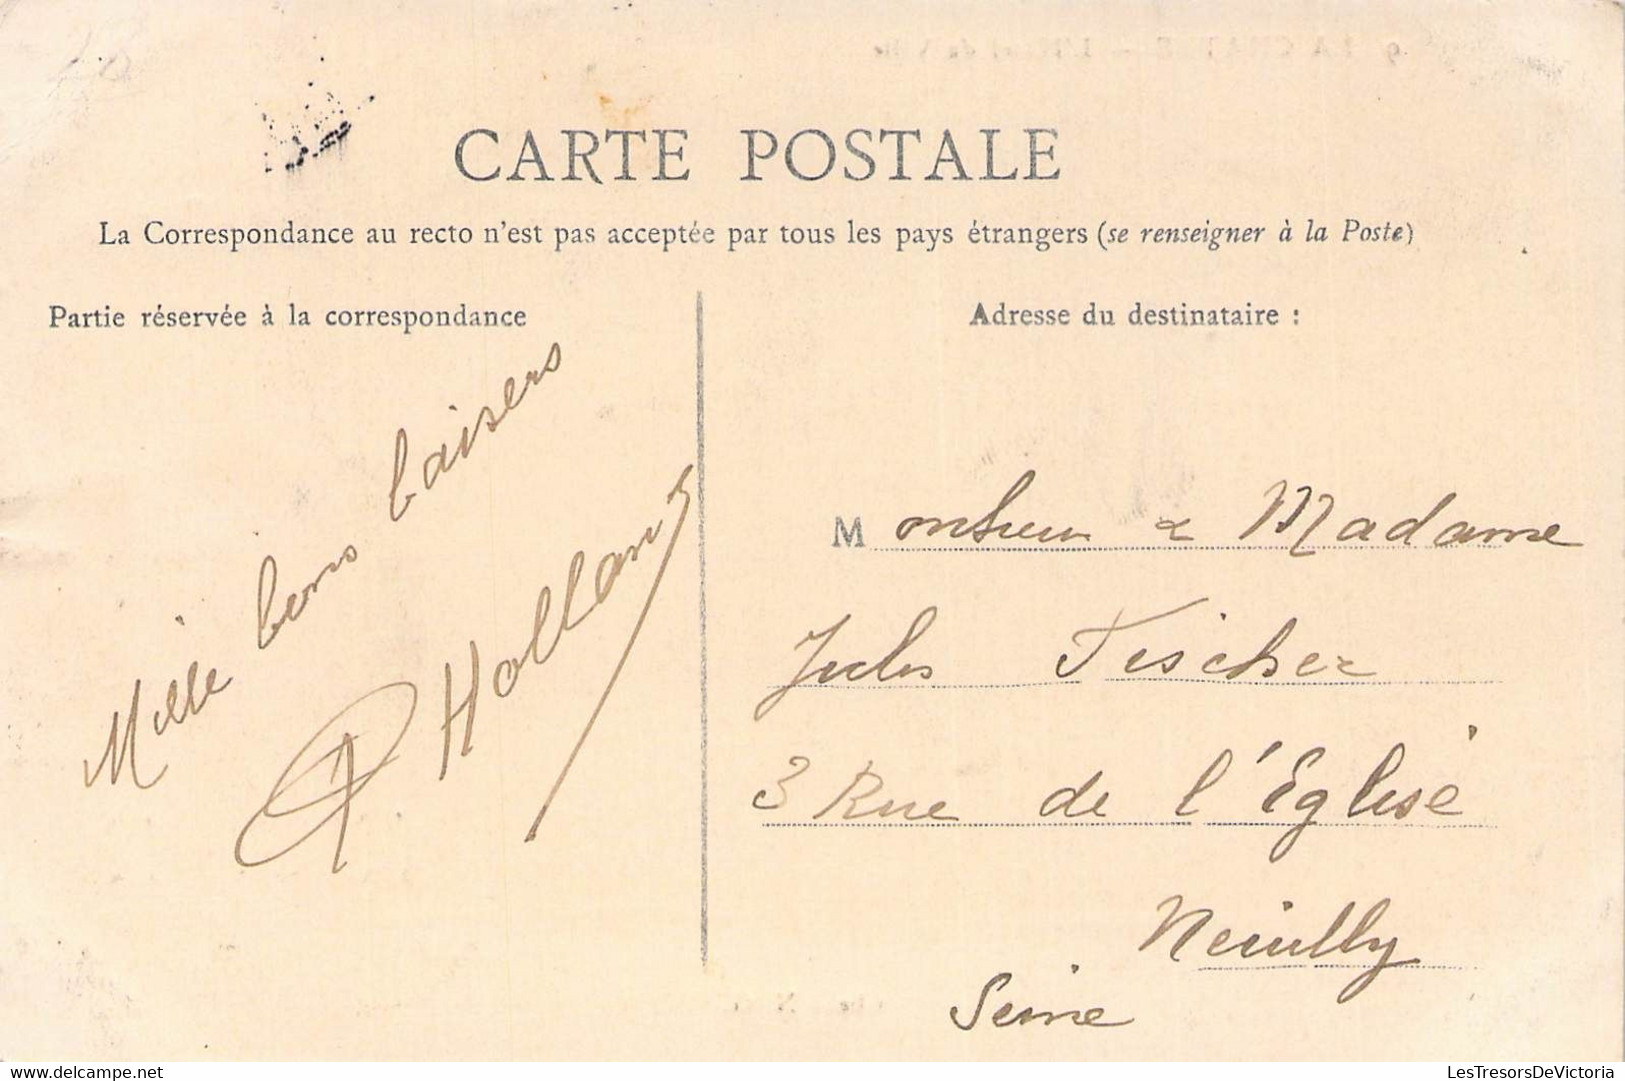 CARTE POSTALE
La Correspondance au recto n'est pas acceptée par tous les pays étrangers (se renseigner à la Poste)
Partie réservée à la correspondance
Mille bons baisers
Adresse du destinataire :
Monsieur & Madame
Jules Fischer
3 Rue de l'Eglise
Neuilly
Seine
www.delcampe.net
LesTresorsDeVictoria